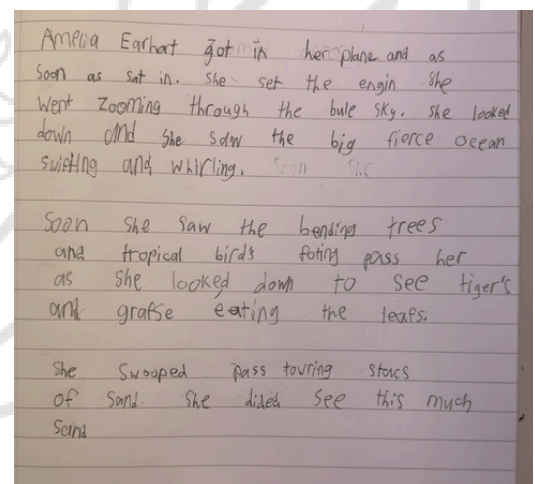 Amelia Earhart got in her plane and as
Soon as sat in. She set the engin She
went zooming through the bule sky. she looked
down and She saw the big fierce ocean
swifting and whirling. Soon She
Soon She Saw the bending trees
and tropical birds foting pass her
as She looked down to see tiger's
and grafse eating the leafs.
She Swooped pass touring stacs
of Sand. She dided See this much
Sand